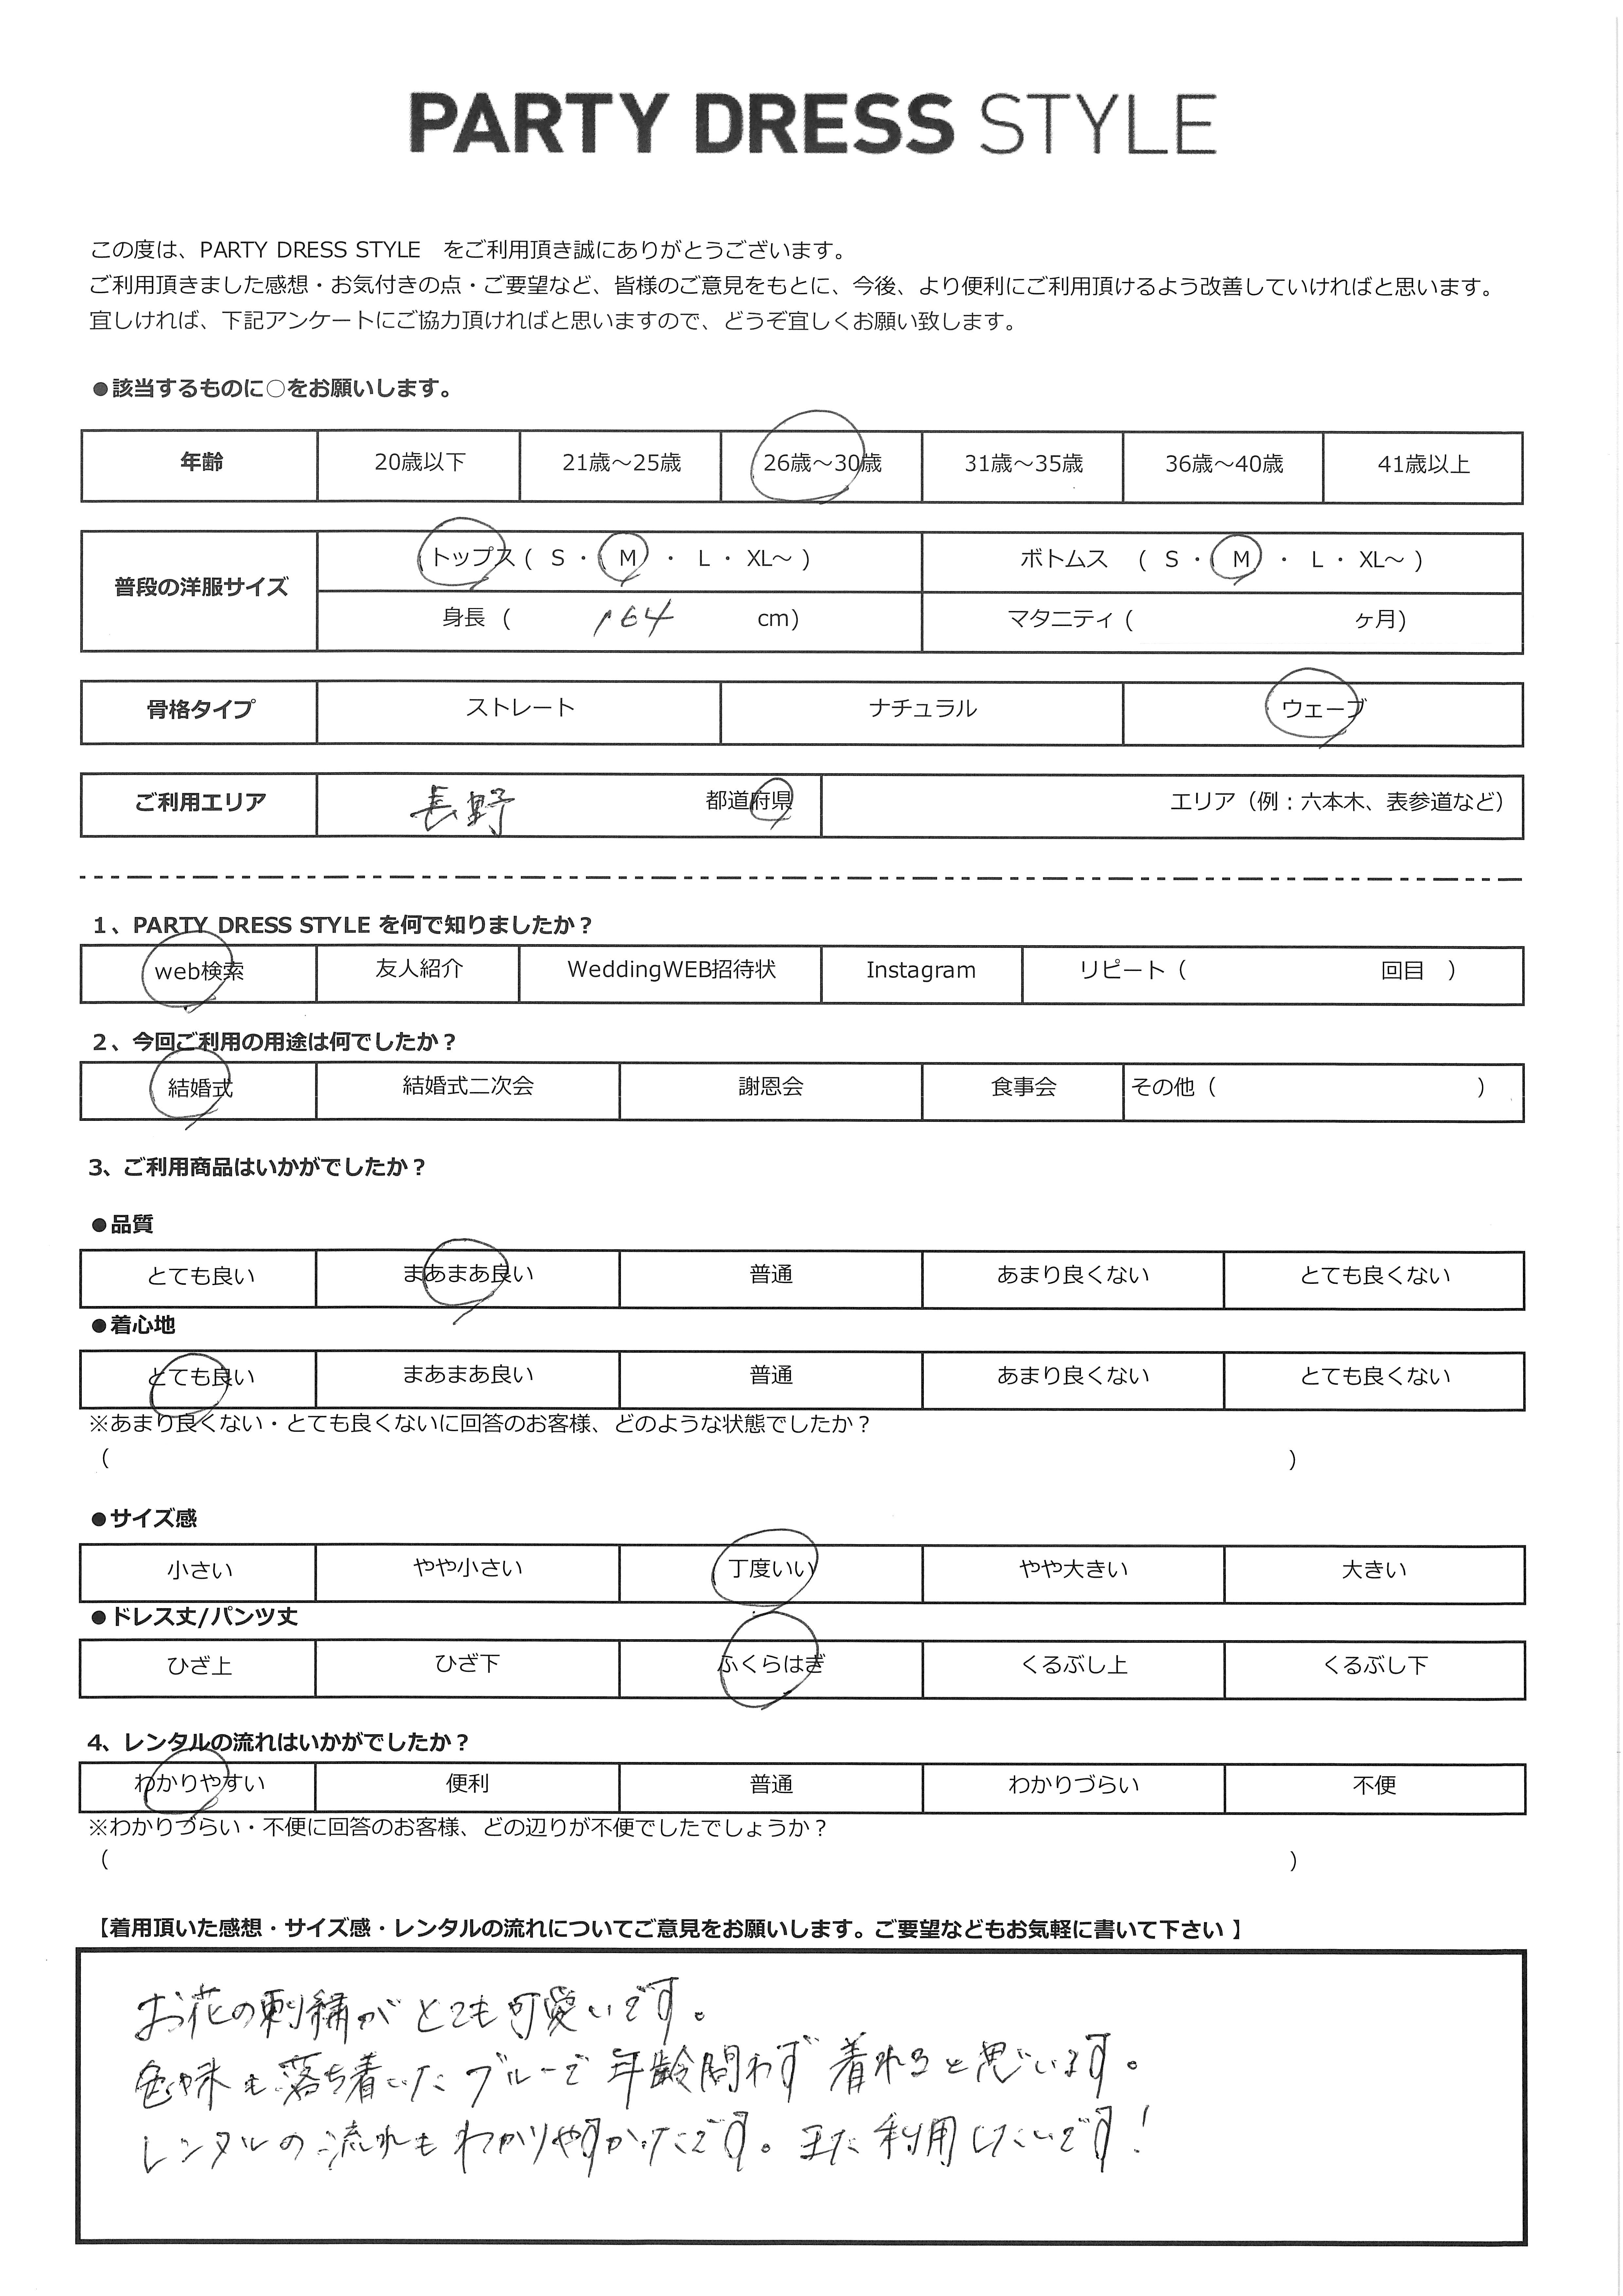 PARTY DRESS STYLE
この度は、PARTY DRESS STYLE　をご利用頂き誠にありがとうございます。
ご利用頂きました感想・お気付きの点・ご要望など、皆様のご意見をもとに、今後、より便利にご利用頂けるよう改善していければと思います。
宜しければ、下記アンケートにご協力頂ければと思いますので、どうぞ宜しくお願い致します。
●該当するものに○をお願いします。
年齢 20歳以下 21歳～25歳 26歳～30歳 31歳～35歳 36歳～40歳 41歳以上
普段の洋服サイズ トップス ( S ・ M ・ L ・ XL～ ) ボトムス ( S ・ M ・ L ・ XL～ )
身長 ( 164 cm) マタニティ ( ヶ月)
骨格タイプ ストレート ナチュラル ウェーブ
ご利用エリア 長野 都道府県 エリア（例：六本木、表参道など）
1、PARTY DRESS STYLE を何で知りましたか？
web検索 友人紹介 WeddingWEB招待状 Instagram リピート（ 回目 ）
2、今回ご利用の用途は何でしたか？
結婚式 結婚式二次会 謝恩会 食事会 その他（ ）
3、ご利用商品はいかがでしたか？
●品質
とても良い まあまあ良い 普通 あまり良くない とても良くない
●着心地
とても良い まあまあ良い 普通 あまり良くない とても良くない
※あまり良くない・とても良くないに回答のお客様、どのような状態でしたか？
（ ）
●サイズ感
小さい やや小さい 丁度いい やや大きい 大きい
●ドレス丈/パンツ丈
ひざ上 ひざ下 ふくらはぎ くるぶし上 くるぶし下
4、レンタルの流れはいかがでしたか？
わかりやすい 便利 普通 わかりづらい 不便
※わかりづらい・不便に回答のお客様、どの辺りが不便でしたでしょうか？
（ ）
【着用頂いた感想・サイズ感・レンタルの流れについてご意見をお願いします。ご要望などもお気軽に書いて下さい 】
お花の刺繍がとても可愛いです。
色味も落ち着いたブルーで年齢問わず着れると思います。
レンタルの流れもわかりやすかったです。また利用したいです！